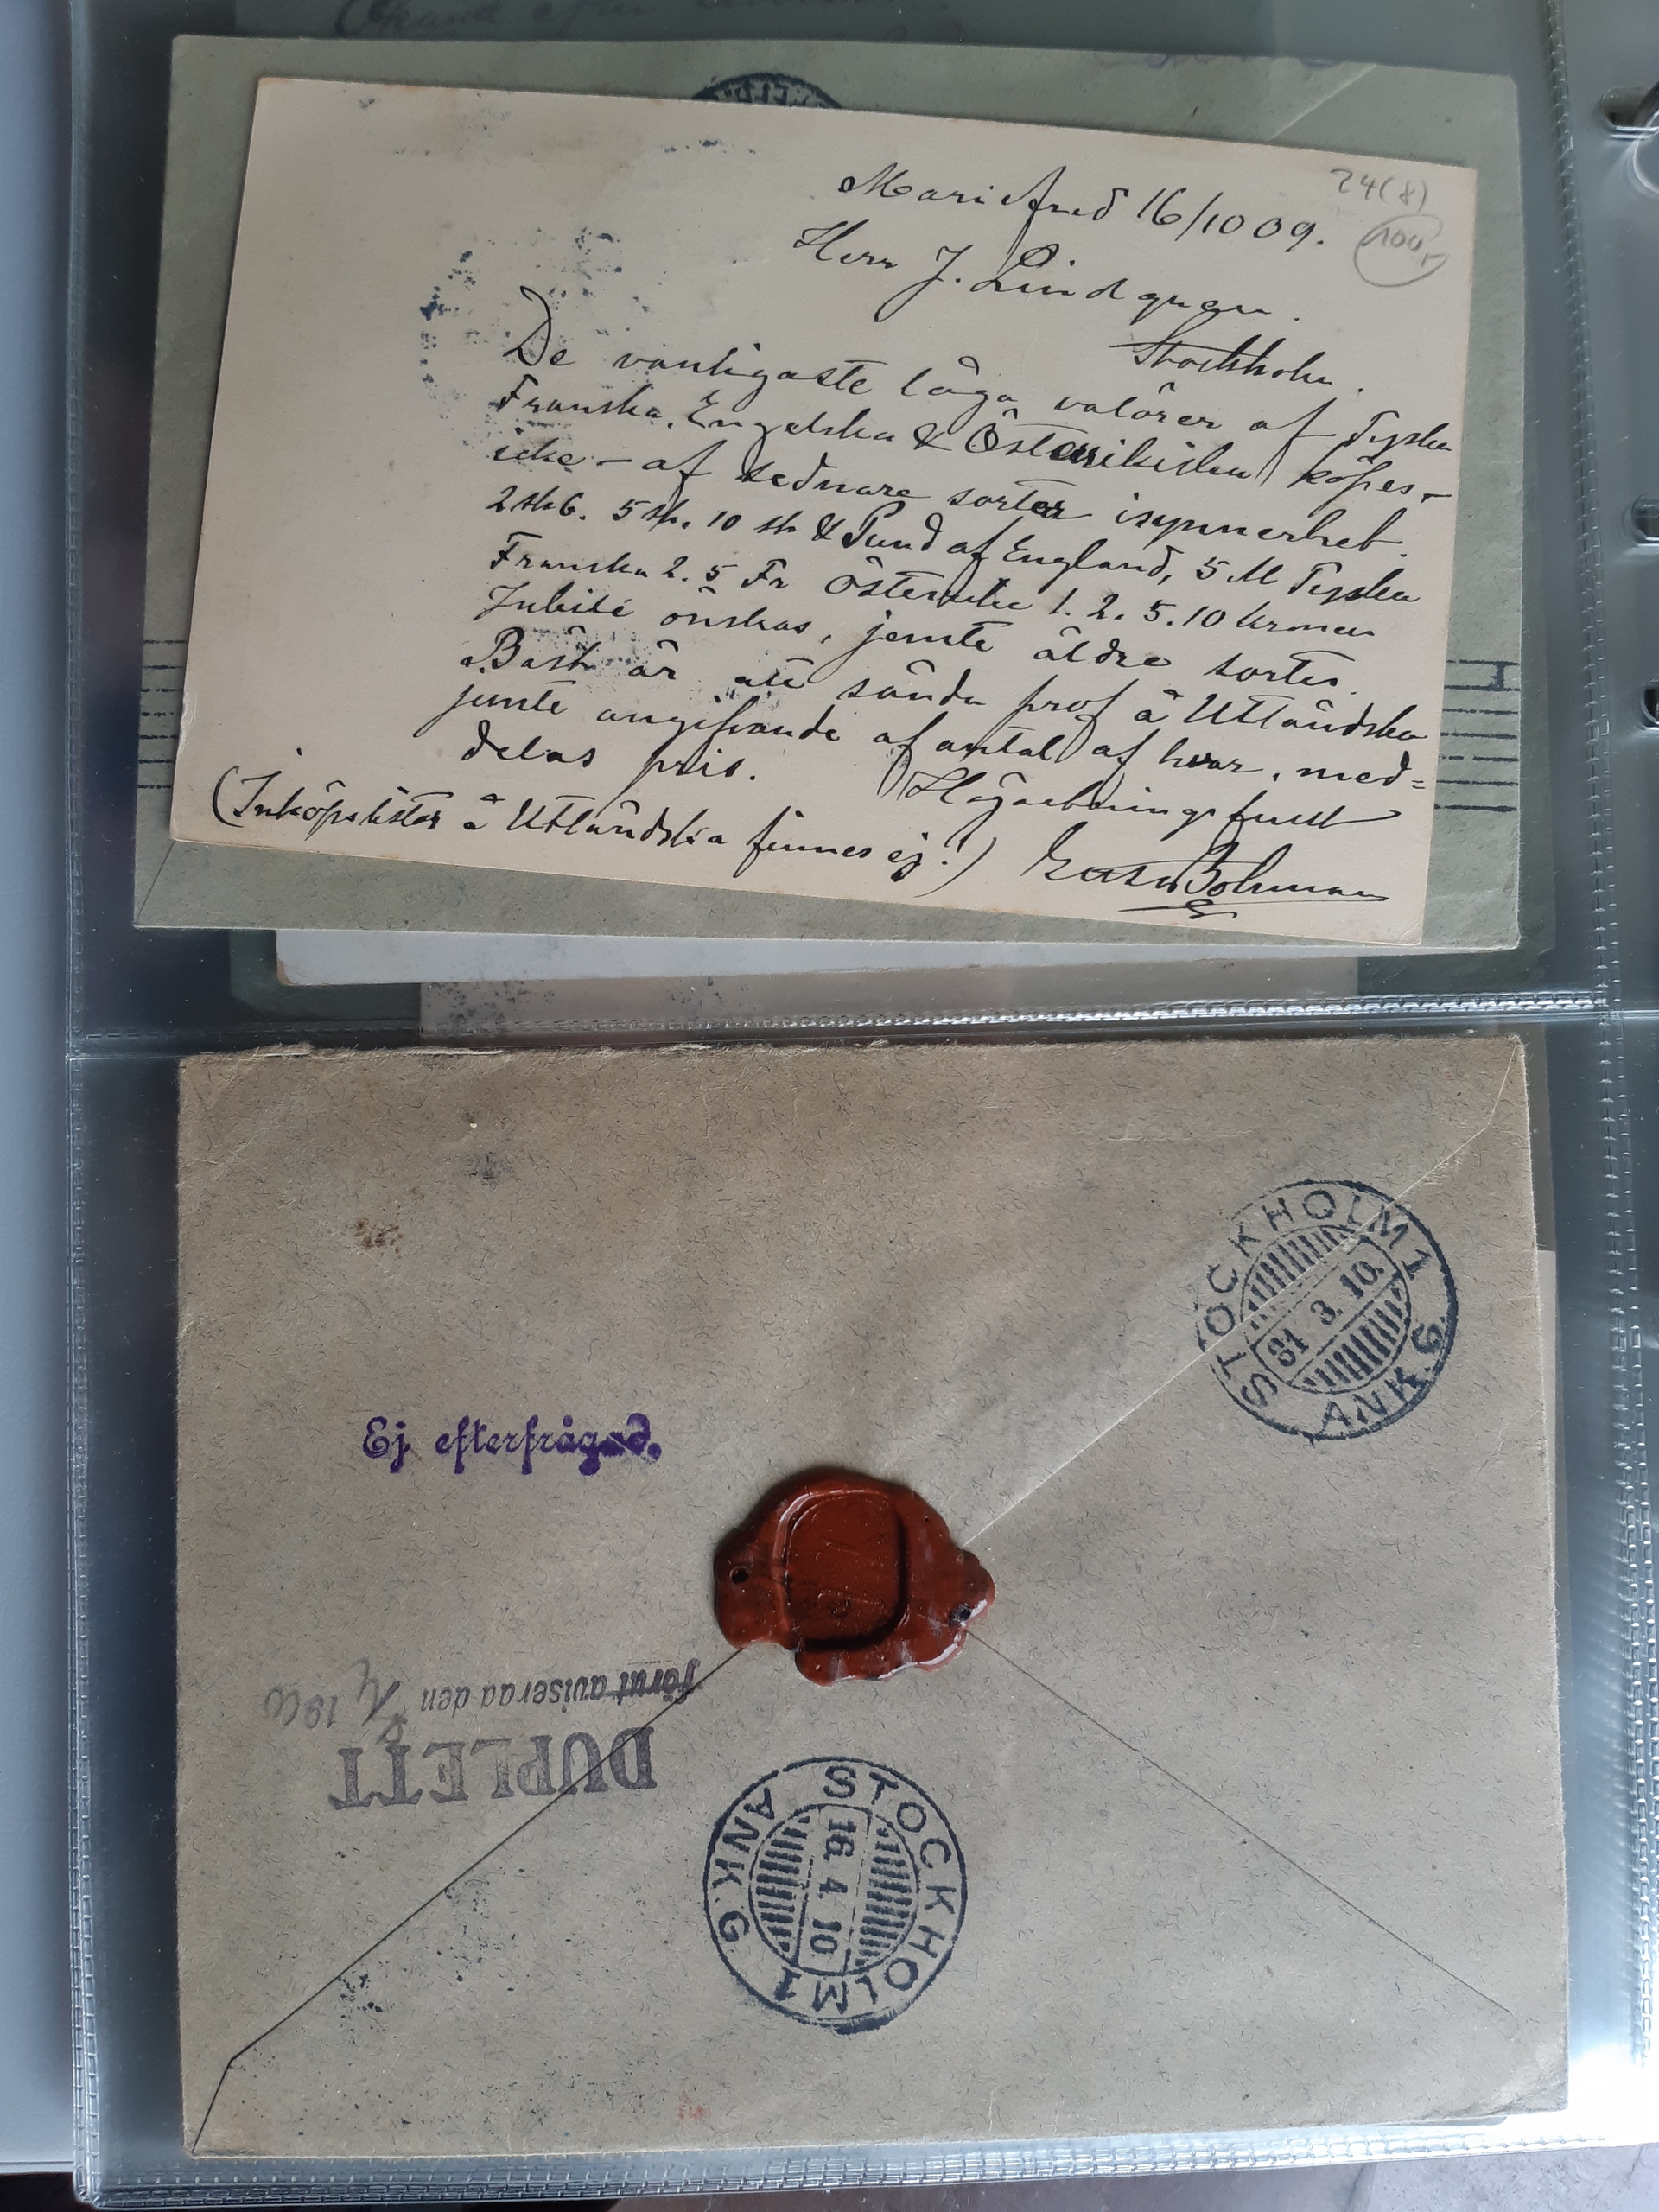 24(8)
100,-
Mariefred 16/10 09.
Herr J. Lindqvan.
Stockholm.
De vanligaste låga valörer af Tyska
Franska, Engelska & Österrikiska köpes
icke – af sednare sorter isynnerhet.
2 sh 6. 5 sh. 10 sh & Pund af England, 5 M Tyska
Franska 2. 5 Fr Österrike 1. 2. 5. 10 kronen
Jubilé önskas, jemte äldre sorter.
Bäst är att sända prof å Utländska
jemte angifvande af antal af hvar, med=
delas pris.
Högaktningsfullt
(Inköpslistor å Utländska finnes ej!)
Bohman
STOCKHOLM 1
31 3. 10.
ANK G
Ej efterfrågad.
förut aviserad den 1910
DUPLETT
STOCKHOLM 1
16. 4 10
ANK. G